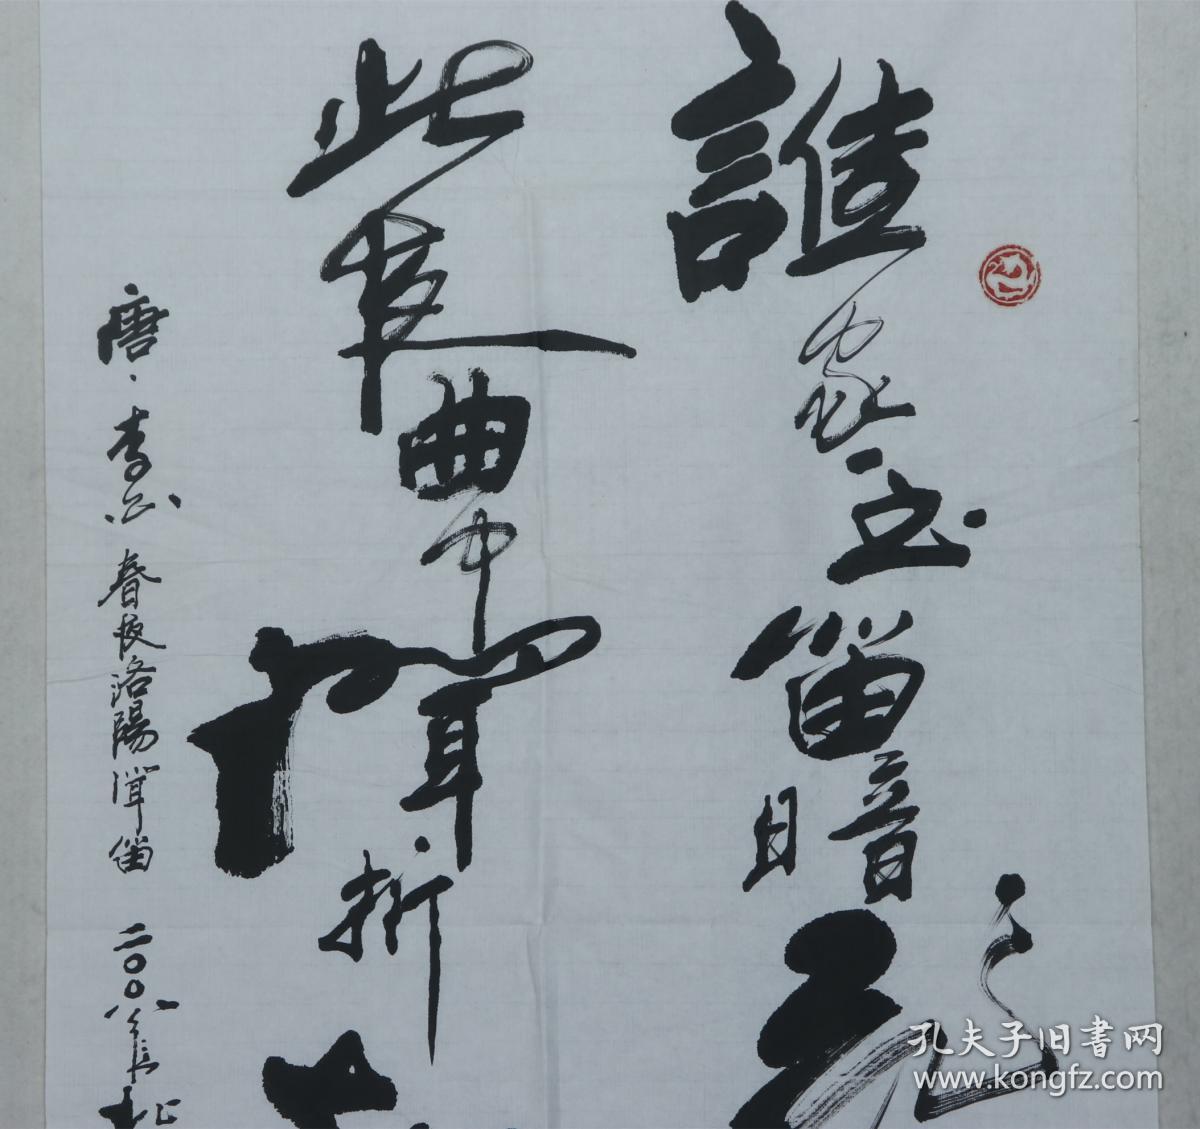 誰家玉笛暗飛
此夜曲中聞折
唐·李白 春夜洛陽聞笛 二〇〇八年
孔夫子旧书网
www.kongfz.com